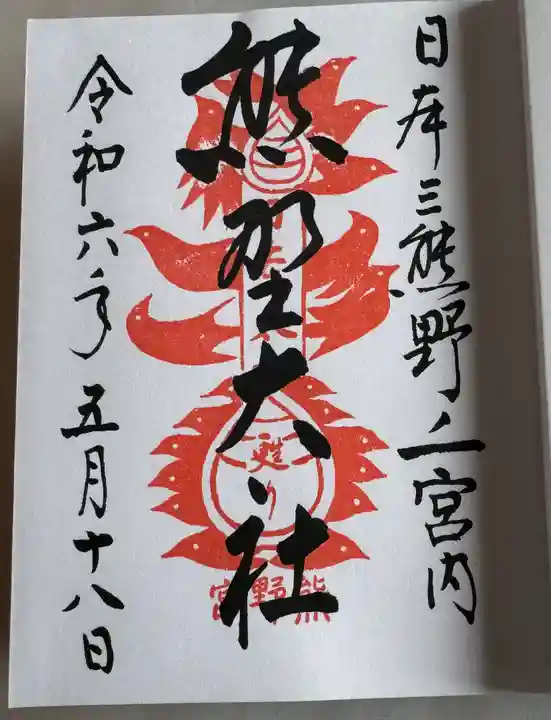 日本三熊野之宮内
熊野大社
令和六年五月十八日
甦り
熊野宮